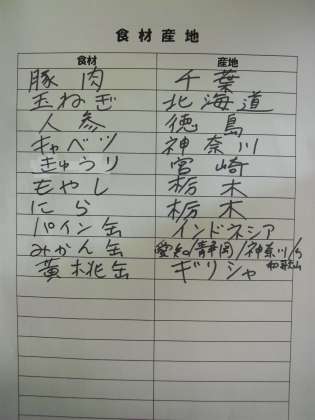 食材産地
食材 産地
豚肉 千葉
玉ねぎ 北海道
人参 徳島
キャベツ 神奈川
きゅうり 宮崎
もやし 栃木
にら 栃木
パイン缶 インドネシア
みかん缶 愛知/静岡/神奈川/和歌山
黄桃缶 ギリシャ